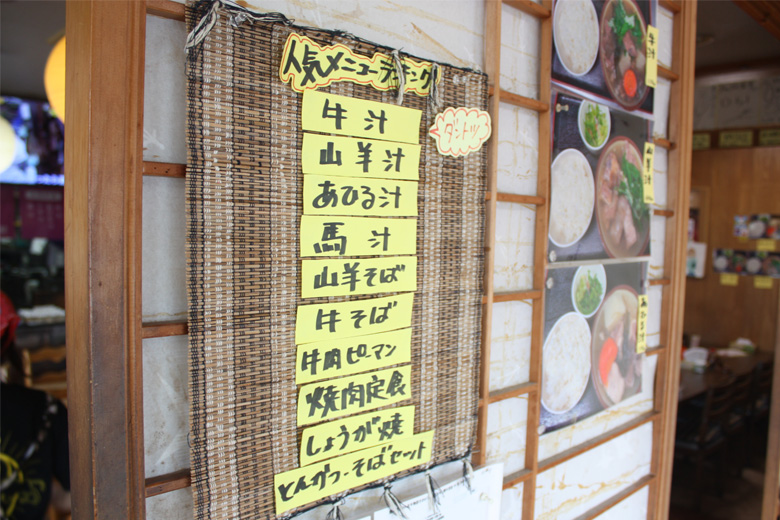 人気メニューランキング
牛汁
ダントツ
山羊汁
あひる汁
馬汁
山羊そば
牛そば
牛肉ピーマン
焼肉定食
しょうが焼
とんかつ・そばセット
牛汁
山羊汁
あひる汁